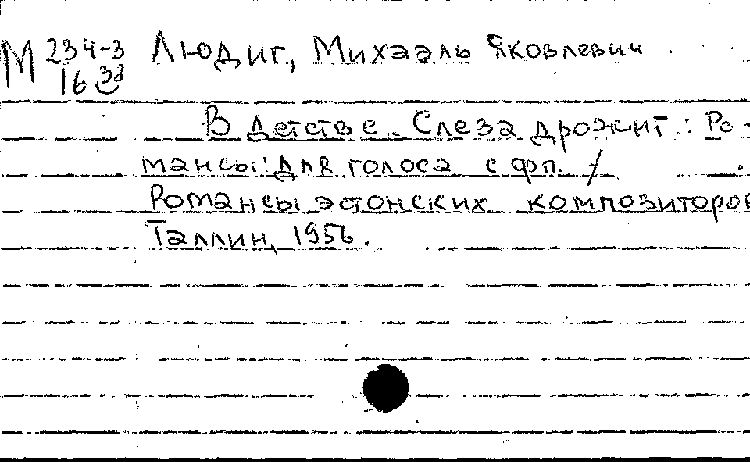 М 234-3 Людиг, Михаэль Яковлевич
16
В детстве. Слеза дрожит : Ро-
мансы: для голоса с фп. /
Романсы эстонских композиторов
Таллин, 1956.